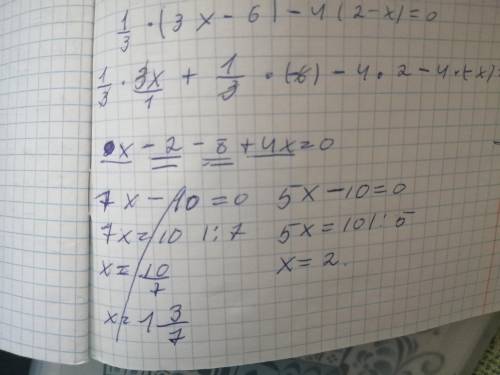 1/3 · (3x - 6) - 4(2-x)=0
1/3 · 3x/1 + 1/3 · (-6) - 4 · 2 - 4·(-x)=
x - 2 - 8 + 4x = 0
7x - 10 = 0
7x = 10 | : 7
x = 10/7
x = 1 3/7
5x - 10 = 0
5x = 10 | : 5
x = 2.